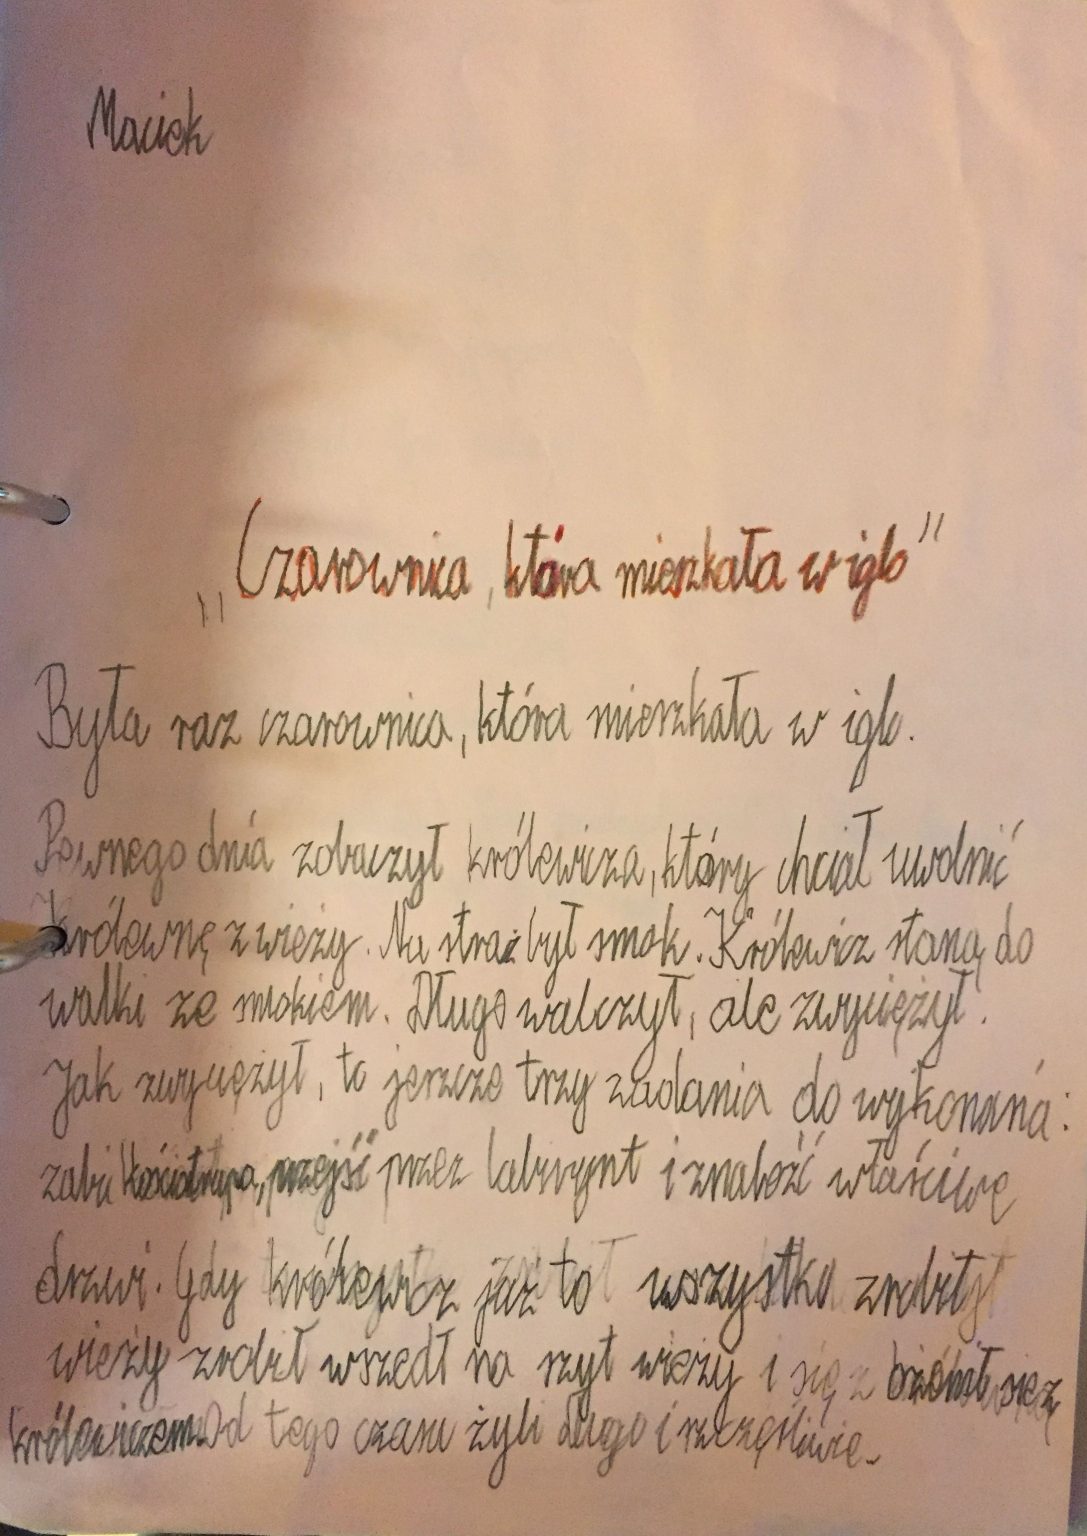 Maciek
„Czarownica, która mieszkała w iglo"
Była raz czarownica, która mieszkała w iglo.
Pewnego dnia zobaczył królewicza, który chciał uwolnić
królewnę z wieży. Na straż był smok. Królewicz staną do
walki ze smokiem. Długo walczył, ale zwyciężył.
Jak zwyciężył, to jeszcze trzy zadania do wykonana:
zabi kościotrupa, przejść przez labirynt i znaleźć właściwe
drzwi. Gdy królewicz już to wszystko zrobił
wieży zrobił wszedł na szyt wieży i się z ożenił się z
królewiczem. Od tego czasu żyli długo i szczęśliwie.